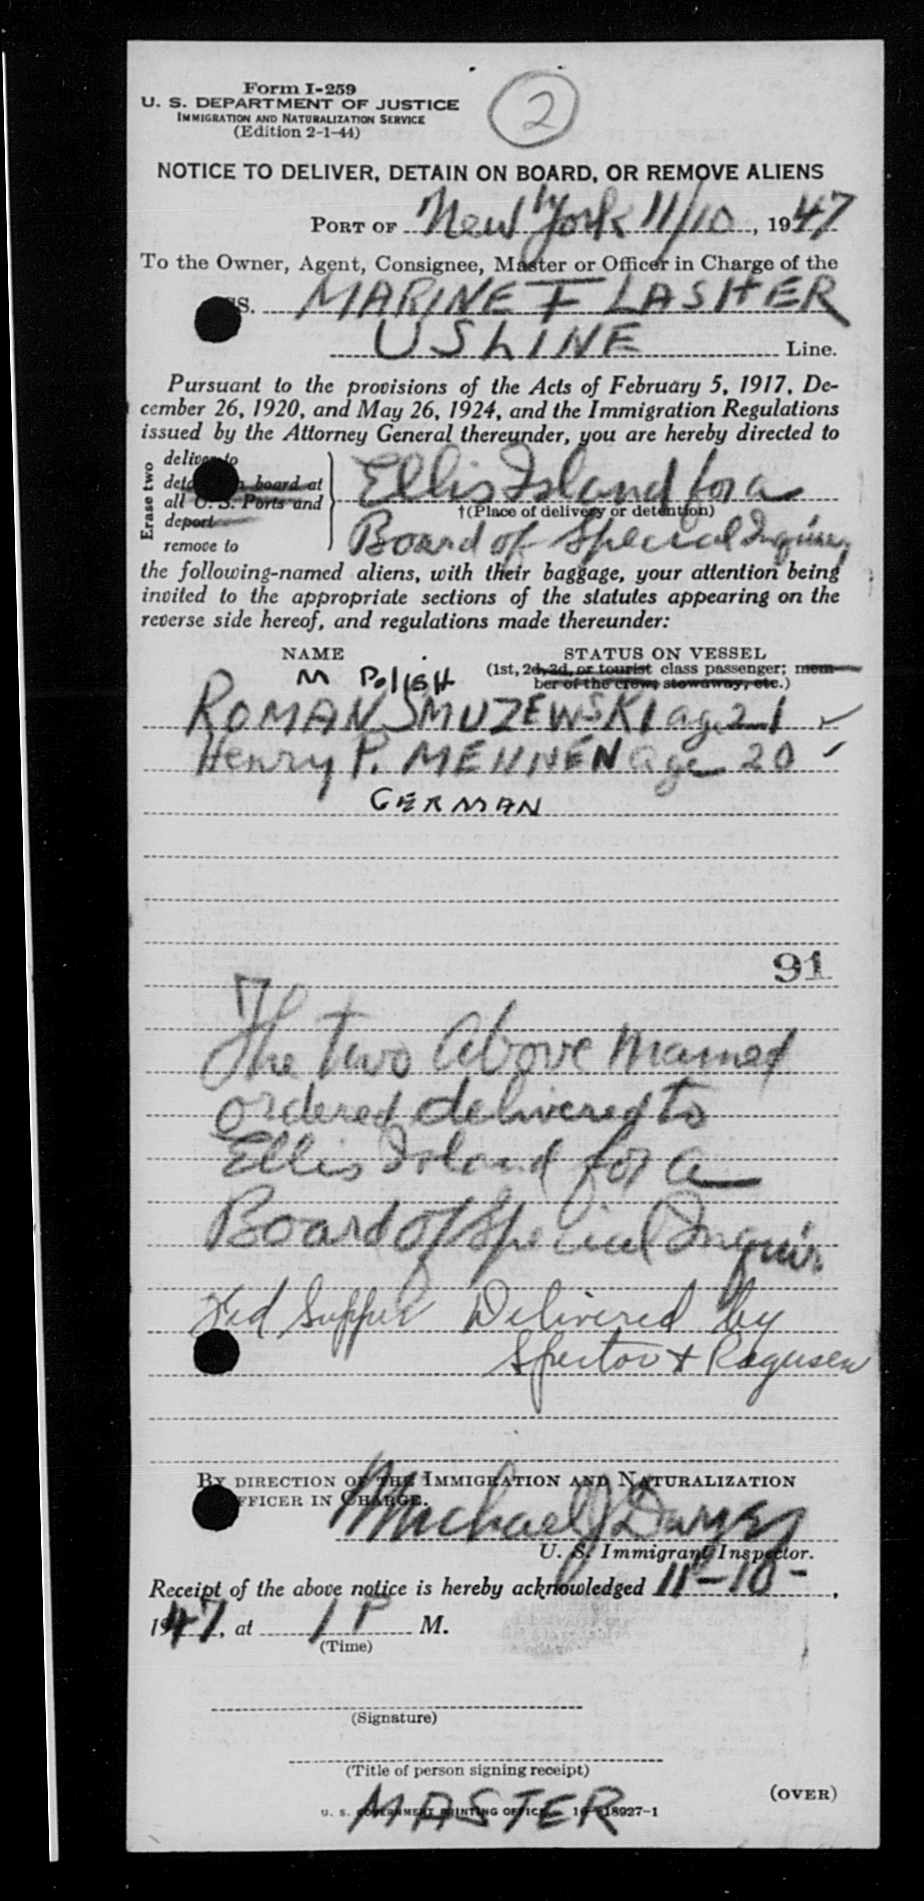 Form I-259
U. S. DEPARTMENT OF JUSTICE
IMMIGRATION AND NATURALIZATION SERVICE
(Edition 2-1-44)
2
NOTICE TO DELIVER, DETAIN ON BOARD, OR REMOVE ALIENS
PORT OF New York 11/10, 1947
To the Owner, Agent, Consignee, Master or Officer in Charge of the
SS. MARINE FLASHER
US LINE Line.
Pursuant to the provisions of the Acts of February 5, 1917, De-
cember 26, 1920, and May 26, 1924, and the Immigration Regulations
issued by the Attorney General thereunder, you are hereby directed to
Erase two
deliver to
board at
all U. S. Ports and
deport
remove to
Ellis Island for a
†(Place of delivery or detention)
Board of Special Inquiry
the following-named aliens, with their baggage, your attention being
invited to the appropriate sections of the statutes appearing on the
reverse side hereof, and regulations made thereunder:
NAME
STATUS ON VESSEL
(1st, 2d, 3d, or tourist class passenger; mem-
ber of the crew, stowaway, etc.)
M POLISH
ROMAN SMUZEWSKI age 21
Henry P. MEHNEN age 20
GERMAN
91
The two above named
ordered delivered to
Ellis Island for a
Board of Special Inquir
Fed Supper Delivered by
Spector + Ragusen
BY DIRECTION OF THE IMMIGRATION AND NATURALIZATION
OFFICER IN CHARGE.
Michael J
U. S. Immigrant Inspector.
Receipt of the above notice is hereby acknowledged 11-10-,
1947, at 1 P M.
(Time)
(Signature)
(Title of person signing receipt)
(OVER)
MASTER
U. S. GOVERNMENT PRINTING OFFICE 16-18927-1